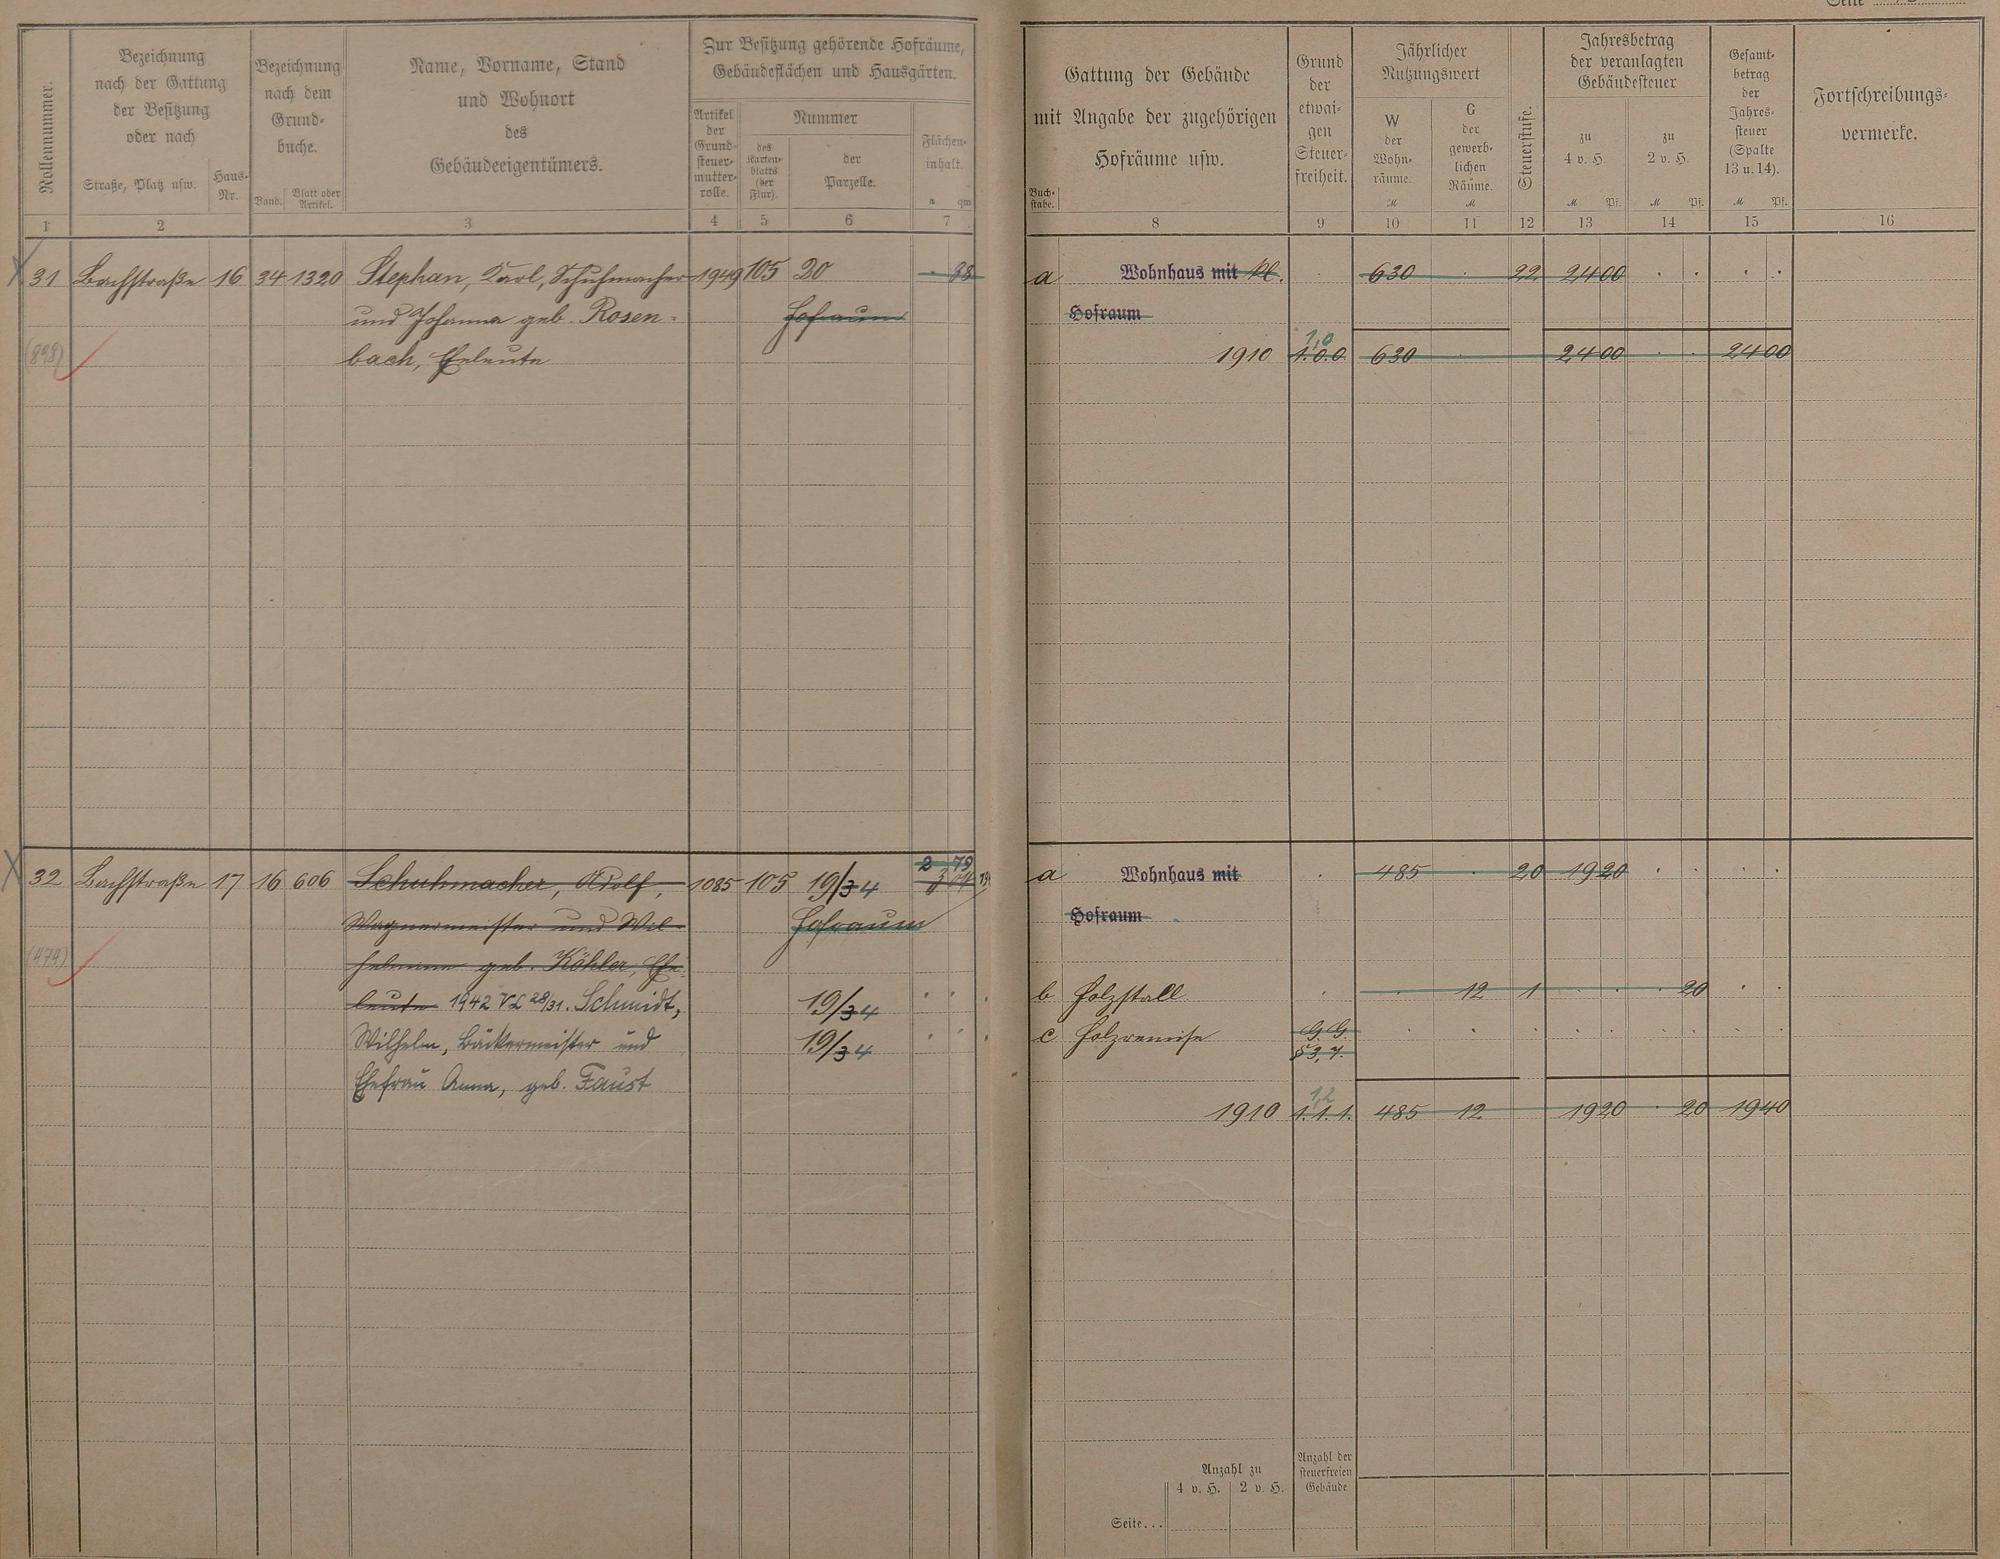 Seite
Rollennummer.
Bezeichnung
nach der Gattung
der Besitzung
oder nach
Straße, Platz usw.
Haus-
Nr.
Bezeichnung
nach dem
Grund-
buche.
Band.
Blatt oder
Artikel.
Name, Vorname, Stand
und Wohnort
des
Gebäudeeigentümers.
Zur Besitzung gehörende Hofräume,
Gebäudeflächen und Hausgärten.
Artikel
der
Grund-
steuer-
mutter-
rolle.
Nummer
des
Karten-
blatts
(der
Flur).
der
Parzelle.
Flächen-
inhalt.
a qm
1 2 3 4 5 6 7
31 Bachstraße 16 34 1320 Stephan, Karl, Schuhmacher 1949 105 20 88
und Johanna geb. Rosen- Hofraum
(898) bach, Eheleute
32 Bachstraße 17 16 606 Schuhmacher, Adolf, 1085 105 19/34 2 79
Wagnermeister und Wil- Hofraum
(474) helmine geb. Köhler, Ehe-
leute 1942 VL 28/31. Schmidt, 19/34
Wilhelm, Bäckermeister und 19/34
Ehefrau Anna, geb. Faust
Gattung der Gebäude
mit Angabe der zugehörigen
Hofräume usw.
Buch-
stabe.
Grund
der
etwai-
gen
Steuer-
freiheit.
Jährlicher
Nutzungswert
W
der
Wohn-
räume.
M
G
der
gewerb-
lichen
Räume.
M
Steuerstufe.
Jahresbetrag
der veranlagten
Gebäudesteuer
zu
4 v. H.
M Pf.
zu
2 v. H.
M Pf.
Gesamt-
betrag
der
Jahres-
steuer
(Spalte
13 u. 14).
M Pf.
Fortschreibungs-
vermerke.
8 9 10 11 12 13 14 15 16
a Wohnhaus mit kl. 630 22 24 00
Hofraum
1,0
1910 1.0.0. 630 24 00 24 00
a Wohnhaus mit 485 20 19 20
Hofraum
b Holzstall 12 1 20
c Holzremise G.G.
§ 3,7.
1,2
1910 1.1.1. 485 12 19 20 20 19 40
Anzahl zu
4 v. H. 2 v. H.
Anzahl der
steuerfreien
Gebäude
Seite...